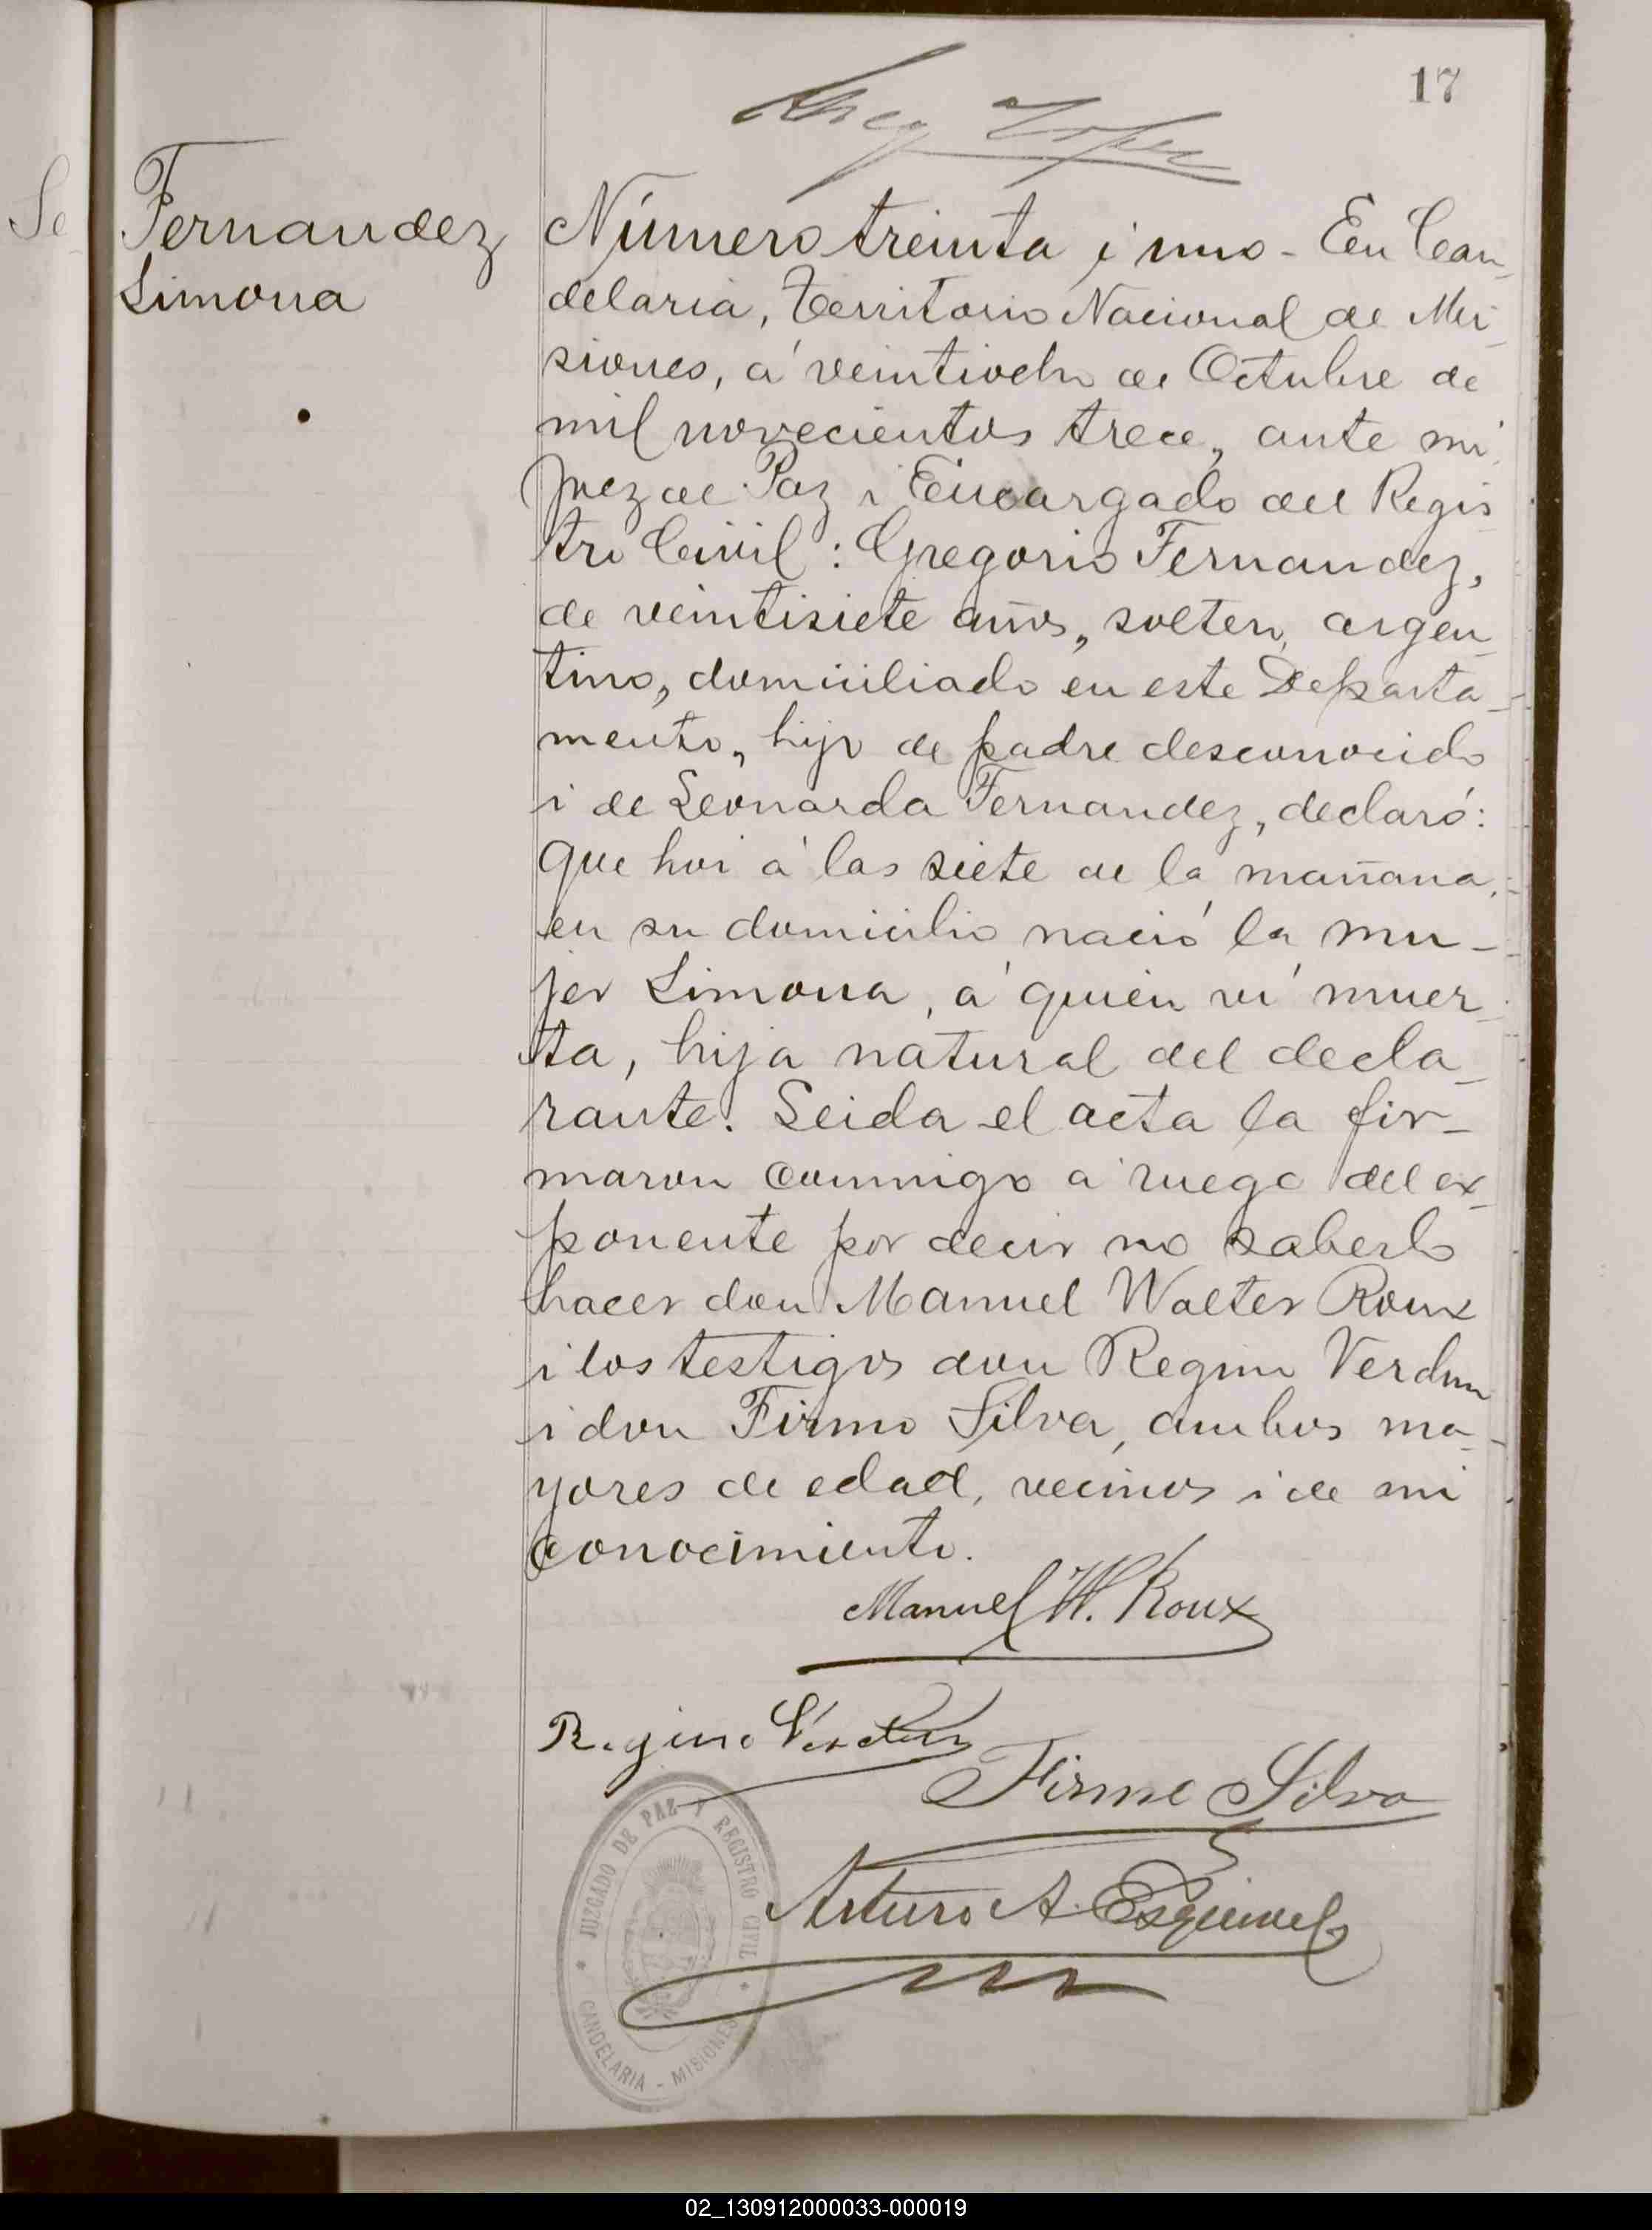 17
Fernandez
Simona
Número treinta i uno - En Can-
delaria, Territorio Nacional de Mi-
siones, á veintiocho de Octubre de
mil novecientos trece, ante mi
Juez de Paz i Encargado del Regis-
tro Civil: Gregorio Fernandez,
de veintisiete años, soltero, argen-
tino, domiciliado en este Departa-
mento, hijo de padre desconocido
i de Leonarda Fernandez, declaró:
Que hoi á las siete de la mañana,
en su domicilio nació la mu-
jer Simona, á quien ví muer-
ta, hija natural del decla-
rante. Leida el acta la fir-
maron conmigo a ruego del ex-
ponente por decir no saberlo
hacer don Manuel Walter Roux
i los testigos don Regino Verdun
i don Firmo Silva, ambos ma-
yores de edad, vecinos i de mi
conocimiento.
Manuel W. Roux
Regino Verdun
Firmo Silva
Arturo A. Esquivel
JUZGADO DE PAZ Y REGISTRO CIVIL
CANDELARIA - MISIONES
02_130912000033-000019